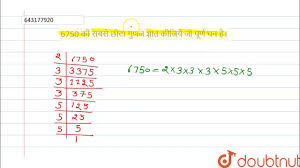 643177920
6750 की सबसे छोटा गुणज ज्ञात कीजिये जो पूर्ण घन हो।
2 | 6750
3 | 3375
3 | 1125
3 | 375
5 | 125
5 | 25
5 | 5
1
6750 = 2×3×3×3×5×5×5
doubtnut